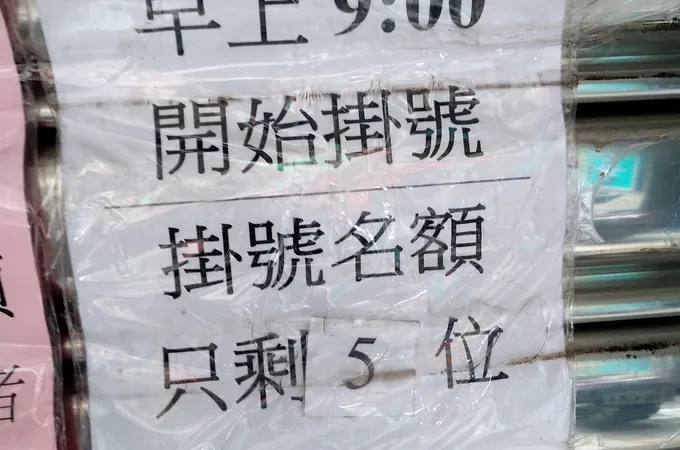 早上9:00
開始掛號
掛號名額
只剩5位
者